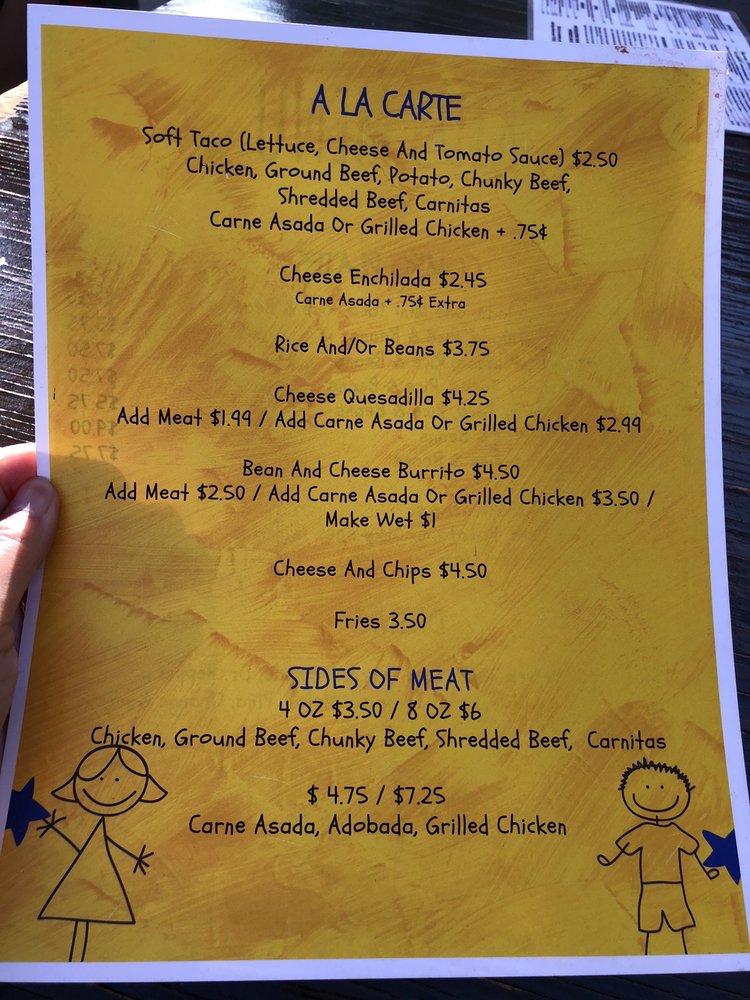 A LA CARTE
Soft Taco (Lettuce, Cheese And Tomato Sauce) $2.50
Chicken, Ground Beef, Potato, Chunky Beef,
Shredded Beef, Carnitas
Carne Asada Or Grilled Chicken + .75¢
Cheese Enchilada $2.45
Carne Asada + .75¢ Extra
Rice And/Or Beans $3.75
Cheese Quesadilla $4.25
Add Meat $1.99 / Add Carne Asada Or Grilled Chicken $2.99
Bean And Cheese Burrito $4.50
Add Meat $2.50 / Add Carne Asada Or Grilled Chicken $3.50 /
Make Wet $1
Cheese And Chips $4.50
Fries 3.50
SIDES OF MEAT
4 OZ $3.50 / 8 OZ $6
Chicken, Ground Beef, Chunky Beef, Shredded Beef, Carnitas
$ 4.75 / $7.25
Carne Asada, Adobada, Grilled Chicken